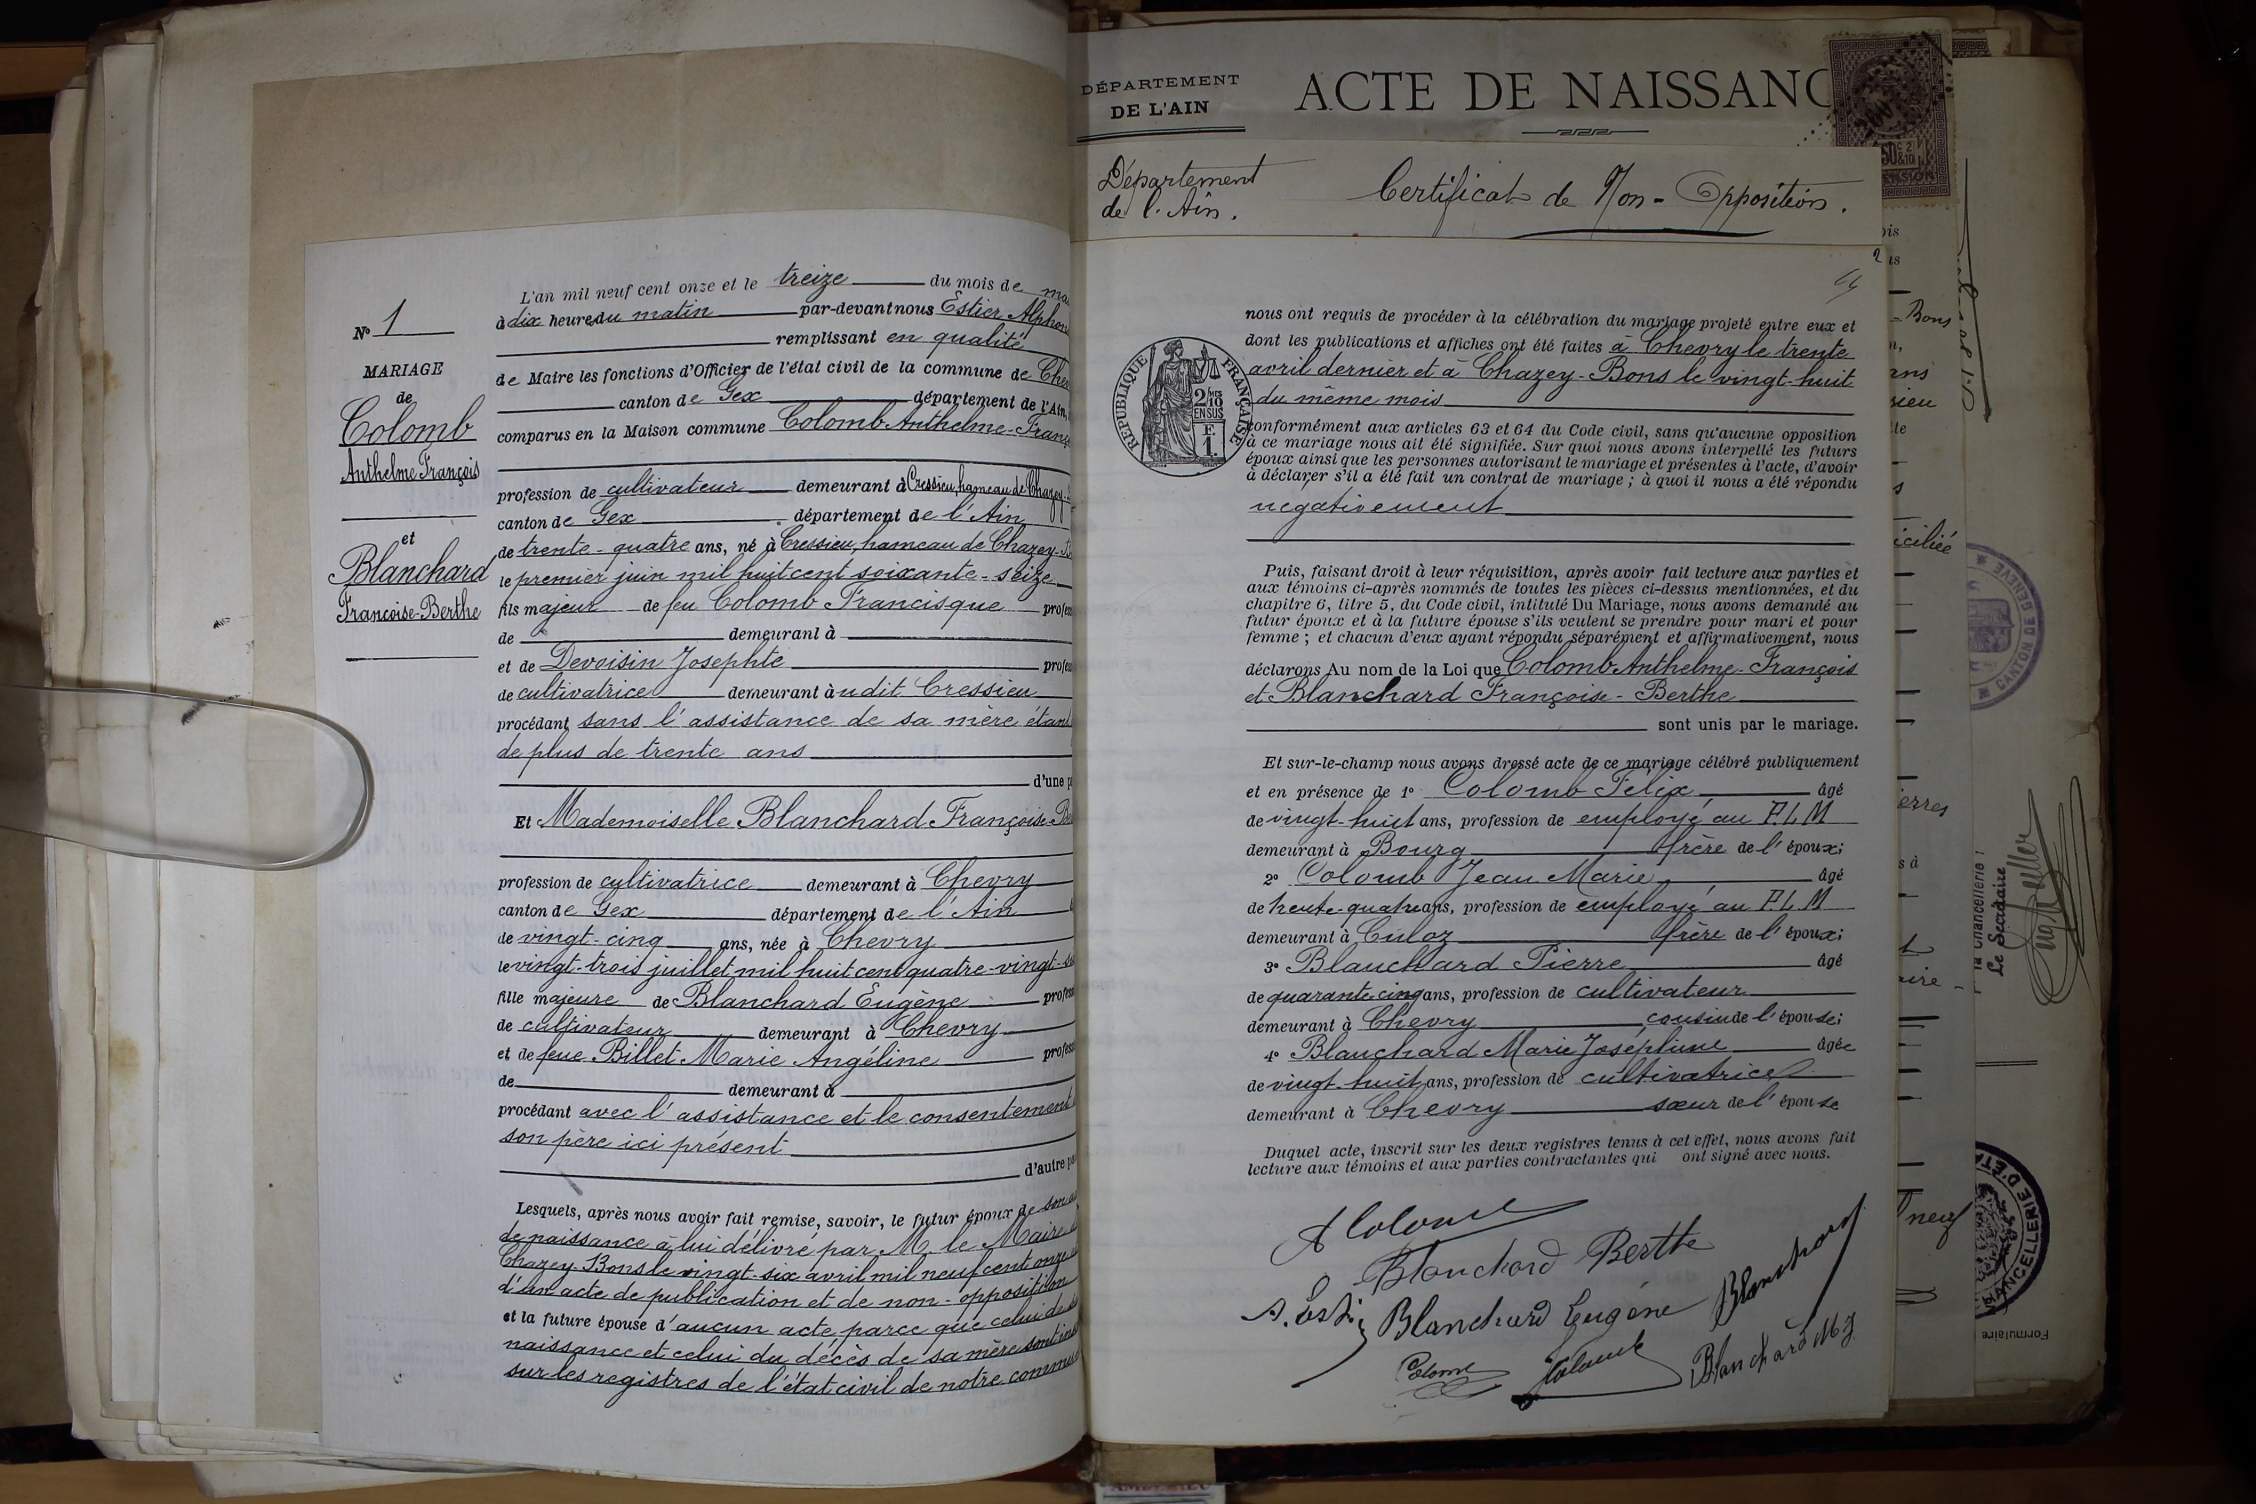 N° 1
MARIAGE
de
Colomb
Anthelme François
et
Blanchard
Françoise-Berthe
L'an mil neuf cent onze et le treize du mois de
à dix heures du matin par-devant nous Estier Alphon
remplissant en qualité
de Maire les fonctions d'Officier de l'état civil de la commune de Che
canton de Gex département de l'Ain,
comparus en la Maison commune Colomb Anthelme-Franç
profession de cultivateur demeurant à Cressieu, hameau de Chazey-
canton de Gex département de l'Ain
de trente-quatre ans, né à Cressieu, hameau de Chazey-B
le premier juin mil huit cent soixante-seize
fils majeur de feu Colomb Francisque profes
de demeurant à
et de Devoisin Josephte profes
de cultivatrice demeurant àudit Cressieu
procédant sans l'assistance de sa mère étant
de plus de trente ans
d'une p
Et Mademoiselle Blanchard Françoise-Be
profession de cultivatrice demeurant à Chevry
canton de Gex département de l'Ain
de vingt-cinq ans, née à Chevry
le vingt-trois juillet mil huit cent quatre-vingt-
fille majeure de Blanchard Eugène profess
de cultivateur demeurant à Chevry
et de feue Billet Marie Angéline profess
de demeurant à
procédant avec l'assistance et le consentement
son père ici présent
d'autre pa
Lesquels, après nous avoir fait remise, savoir, le futur époux de son
de naissance à lui délivré par M. le Maire
Chazey-Bons le vingt-six avril mil neuf cent onze
d'un acte de publication et de non-opposition
et la future épouse d'aucun acte parce que celui de
naissance et celui du décès de sa mère sont
sur les registres de l'état civil de notre commu
DÉPARTEMENT
DE L'AIN
ACTE DE NAISSANC
Département
de l'Ain.
Certificat de Non-Opposition.
nous ont requis de procéder à la célébration du mariage projeté entre eux et
dont les publications et affiches ont été faites à Chevry le trente
avril dernier et à Chazey-Bons le vingt-huit
du même mois
conformément aux articles 63 et 64 du Code civil, sans qu'aucune opposition
à ce mariage nous ait été signifiée. Sur quoi nous avons interpellé les futurs
époux ainsi que les personnes autorisant le mariage et présentes à l'acte, d'avoir
à déclarer s'il a été fait un contrat de mariage ; à quoi il nous a été répondu
négativement
RÉPUBLIQUE FRANÇAISE
2/10
EN SUS
F
1.
Puis, faisant droit à leur réquisition, après avoir fait lecture aux parties et
aux témoins ci-après nommés de toutes les pièces ci-dessus mentionnées, et du
chapitre 6, titre 5, du Code civil, intitulé Du Mariage, nous avons demandé au
futur époux et à la future épouse s'ils veulent se prendre pour mari et pour
femme ; et chacun d'eux ayant répondu séparément et affirmativement, nous
déclarons Au nom de la Loi que Colomb Anthelme-François
et Blanchard Françoise-Berthe
sont unis par le mariage.
Et sur-le-champ nous avons dressé acte de ce mariage célébré publiquement
et en présence de 1° Colomb Félix âgé
de vingt-huit ans, profession de employé au P.L.M
demeurant à Bourg frère de l'époux;
2° Colomb Jean Marie âgé
de trente-quatre ans, profession de employé au P.L.M
demeurant à Culoz frère de l'époux;
3° Blanchard Pierre âgé
de quarante cinq ans, profession de cultivateur
demeurant à Chevry cousin de l'épouse;
4° Blanchard Marie Joséphine âgée
de vingt-huit ans, profession de cultivatrice
demeurant à Chevry sœur de l'épouse
Duquel acte, inscrit sur les deux registres tenus à cet effet, nous avons fait
lecture aux témoins et aux parties contractantes qui ont signé avec nous.
A Colomb
Blanchard Berthe
Blanchard Eugène
Blanchard
Colomb
Blanchard M J
Bons
domiciliée
CANTON DE GENÈVE
la Chancellerie :
Le Secrétaire
neuf
CHANCELLERIE D'ÉTAT
Formulaire